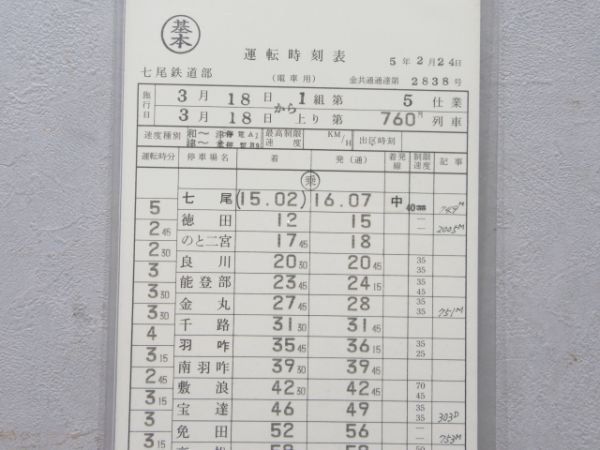 基本
運転時刻表
5年2月24日
七尾鉄道部
(電車用)
金共通通達第 2838号
施行日 3月18日から 1組第 5 仕業
3月18日 上り第 760M 列車
速度種別 和〜津 停電A2 最高制限速度 KM/H 出区時刻
津〜
運転時分 停車場名 着 発(通) 着発線 制限速度 記事
乗
七尾 (15.02) 16.07 中 40 749M
5 徳田 12 15 — 2005M
2 45 のと二宮 17 45 18
2 30 良川 20 30 20 45 35 35
3 能登部 23 45 24 15 35 45
3 30 金丸 27 45 28 35 35 751M
3 30 千路 31 30 31 45
4 羽咋 35 45 36 15 35 25
3 15 南羽咋 39 30 39 45
2 45 敷浪 42 30 42 45 70 45
3 15 宝達 46 49 35 35 303D
3 免田 52 56 753M
3 15